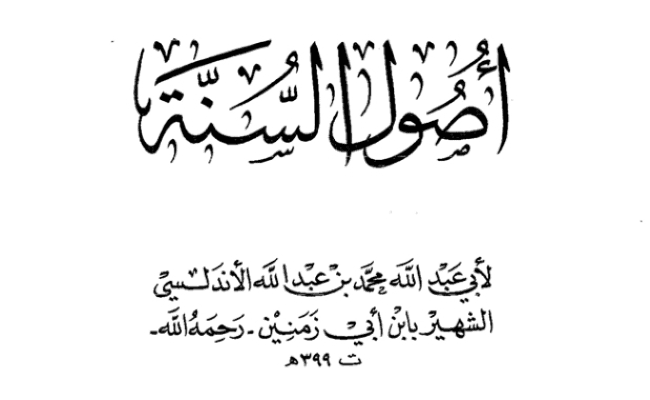 أُصُولُ السُّنَّة
لأبي عَبْد اللَّه محمَّد بنْ عَبْد اللَّه الأندَلسيّ
الشهيْر بابْن أبيْ زَمَنِيْن - رَحِمَهُ اللَّه -
ت ٣٩٩ هـ